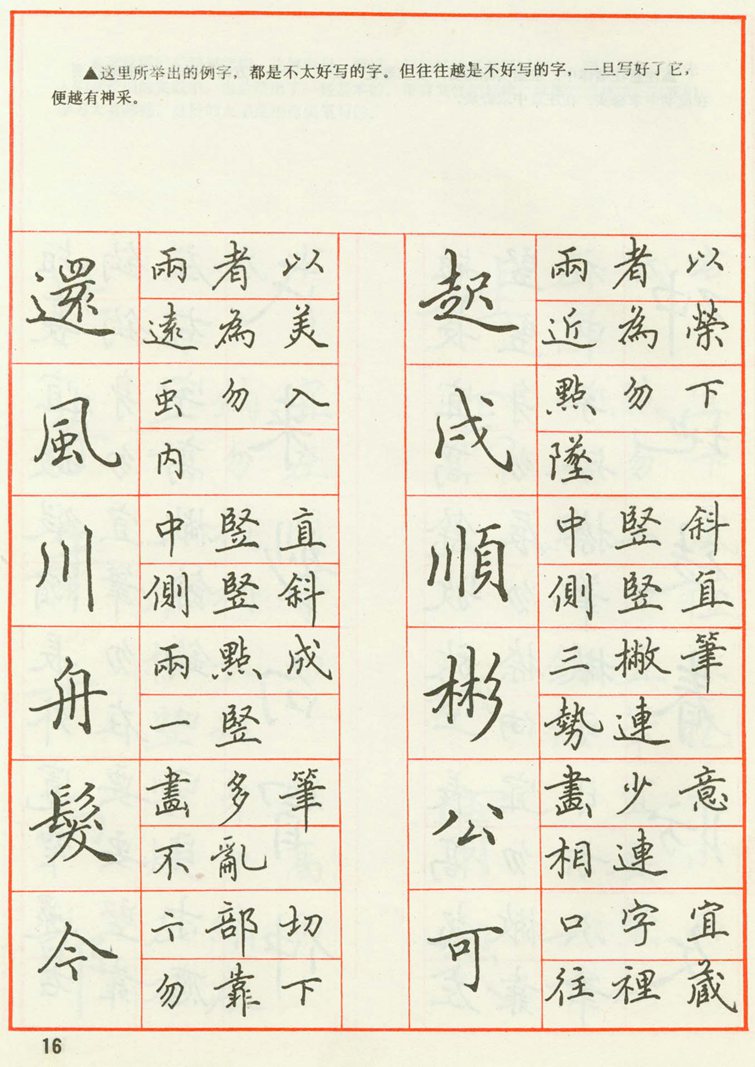 ▲这里所举出的例字，都是不太好写的字。但往往越是不好写的字，一旦写好了它，
便越有神采。
還
兩者以
遠為美
風
虫勿入
內
川
中竪直
側竪斜
舟
兩點成
一竪
髮
畫多筆
不亂
今
部切
勿靠下
起
兩者以
近為榮
戌
點勿下
墜
順
中竪斜
側竪直
彬
三撇筆
勢連
公
畫少意
相連
可
口字宜
往裡藏
16